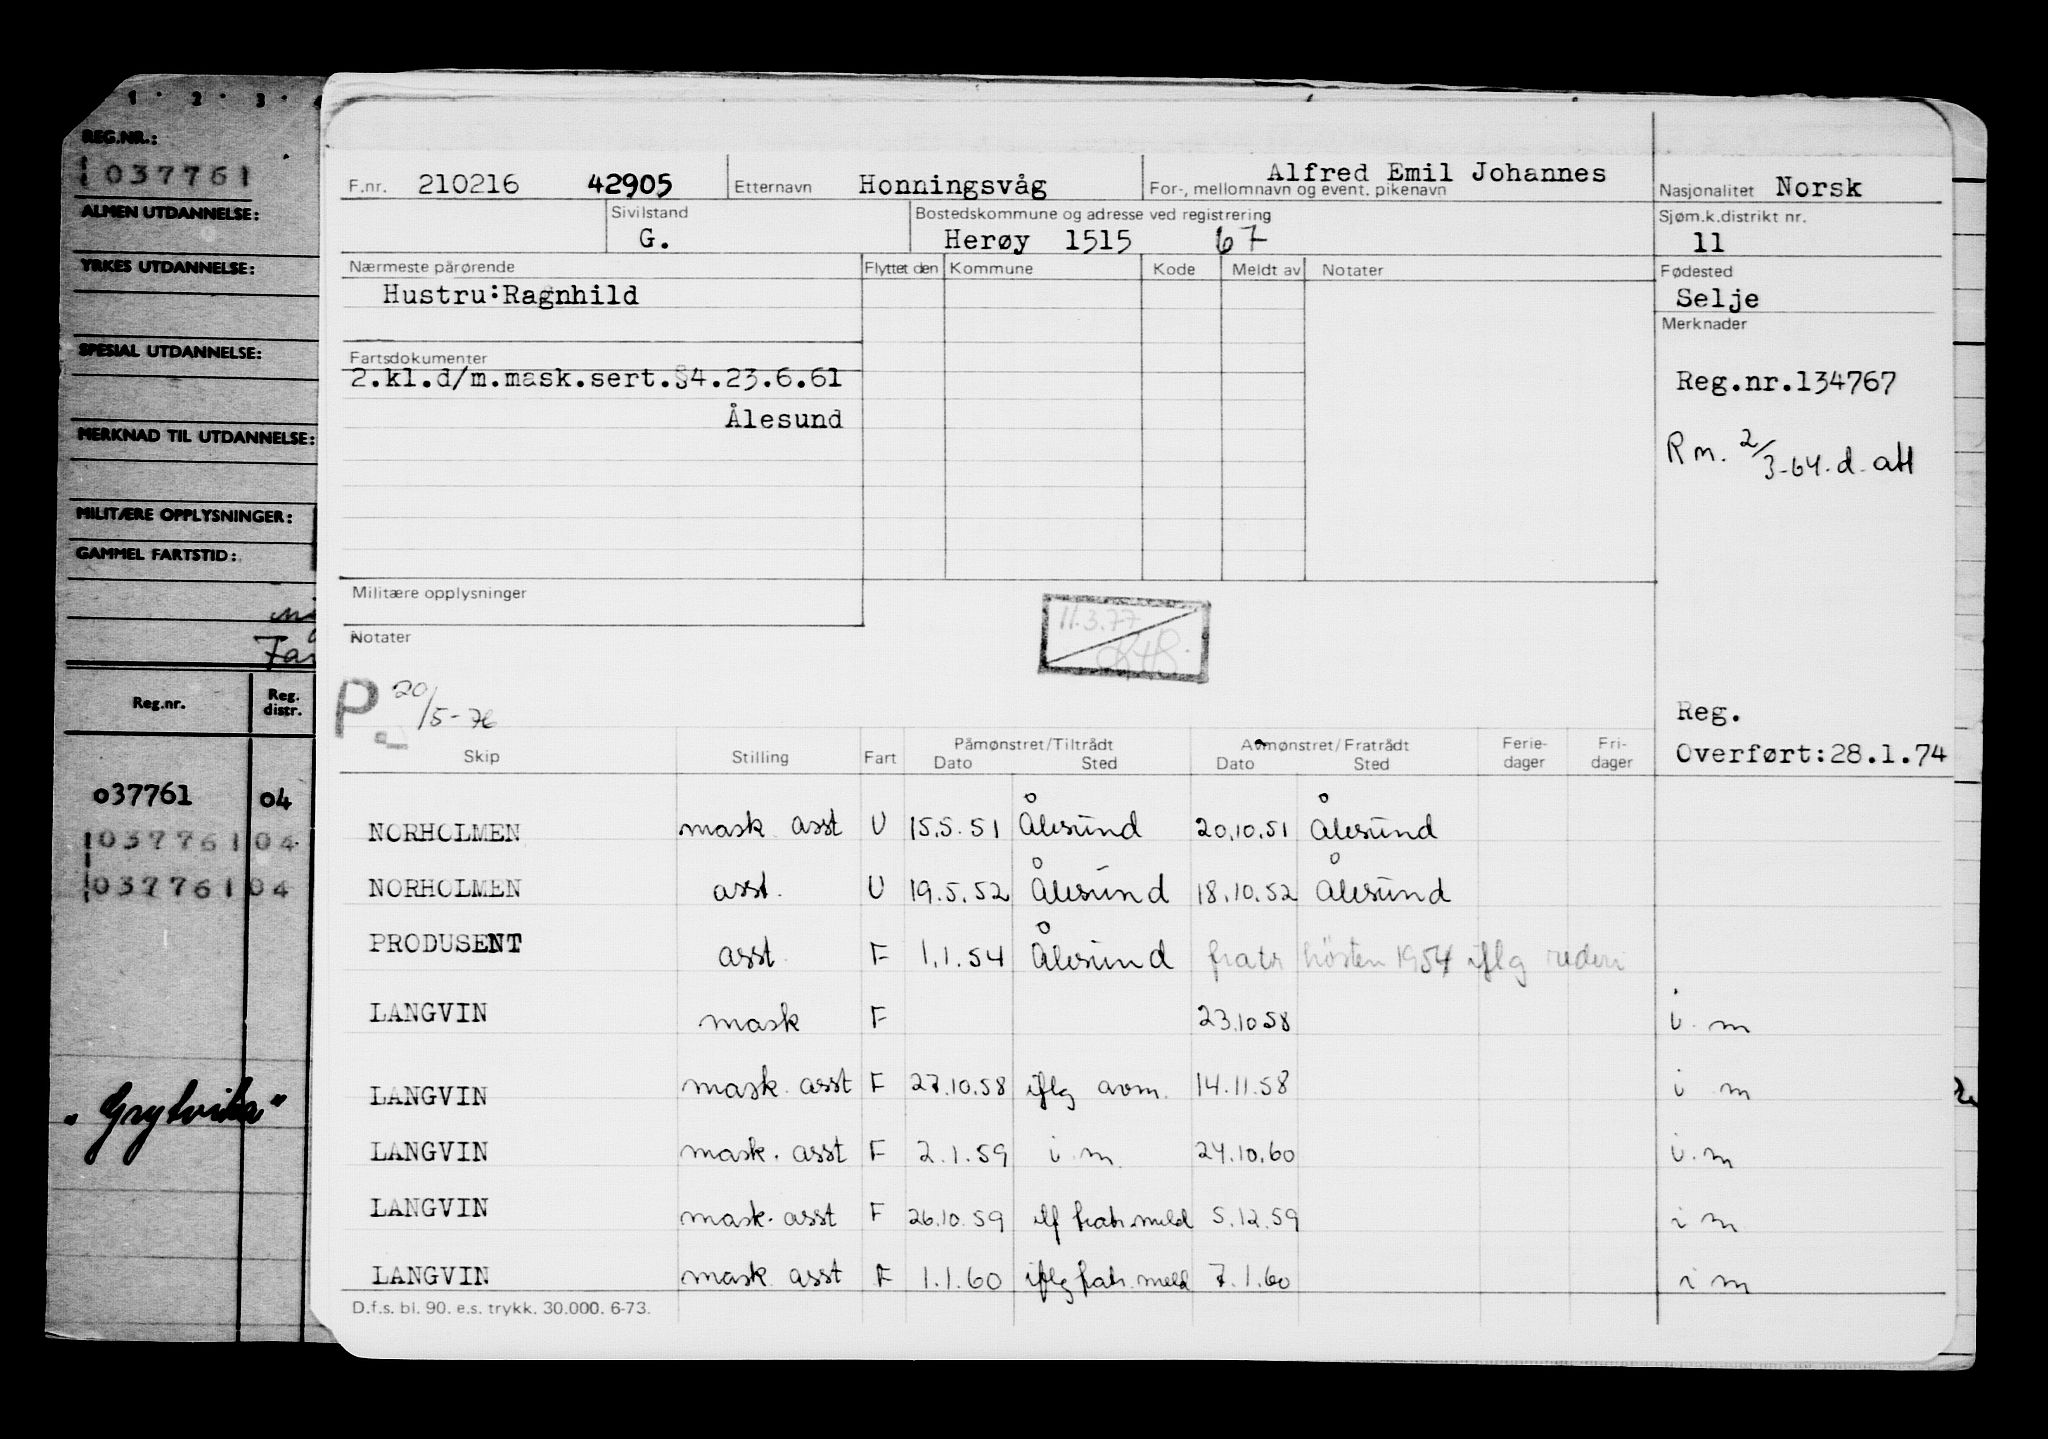 1 · 2 · 3 ·
REG.NR.:
037761
ALMEN UTDANNELSE:
YRKES UTDANNELSE:
SPESIAL UTDANNELSE:
MERKNAD TIL UTDANNELSE:
MILITÆRE OPPLYSNINGER:
GAMMEL FARTSTID:
Reg.nr. Reg. distr.
037761 04
037761 04
037761 04
„Grytvika"
F.nr. 210216 42905 Etternavn Honningsvåg For-, mellomnavn og event. pikenavn Alfred Emil Johannes Nasjonalitet Norsk
Sivilstand G. Bostedskommune og adresse ved registrering Herøy 1515 67 Sjøm.k.distrikt nr. 11
Nærmeste pårørende Flyttet den Kommune Kode Meldt av Notater Fødested
Hustru:Ragnhild Selje
Merknader
Fartsdokumenter
2.kl.d/m.mask.sert.§4.23.6.61 Reg.nr.134767
Ålesund
R m. 2/3-64. d. att
Militære opplysninger
11.3.77
Notater
P 20/5-76
Reg.
Overført:28.1.74
Skip Stilling Fart Påmønstret/Tiltrådt Dato Sted Avmønstret/Fratrådt Dato Sted Ferie-dager Fri-dager
NORHOLMEN mask. asst U 15.5.51 Ålesund 20.10.51 Ålesund
NORHOLMEN asst. U 19.5.52 Ålesund 18.10.52 Ålesund
PRODUSENT asst F 1.1.54 Ålesund fratr høsten 1954 iflg rederi
LANGVIN mask F 23.10 58 i. m
LANGVIN mask. asst F 27.10.58 iflg avm. 14.11.58 i m
LANGVIN mask. asst F 2.1.59 i m. 24.10.60 i. m
LANGVIN mask. asst F 26.10.59 ilf fratr. meld 5.12.59 i m
LANGVIN mask asst F 1.1.60 iflg fratr. meld 7.1.60 i m
D.f.s. bl. 90. e.s. trykk. 30.000. 6-73.